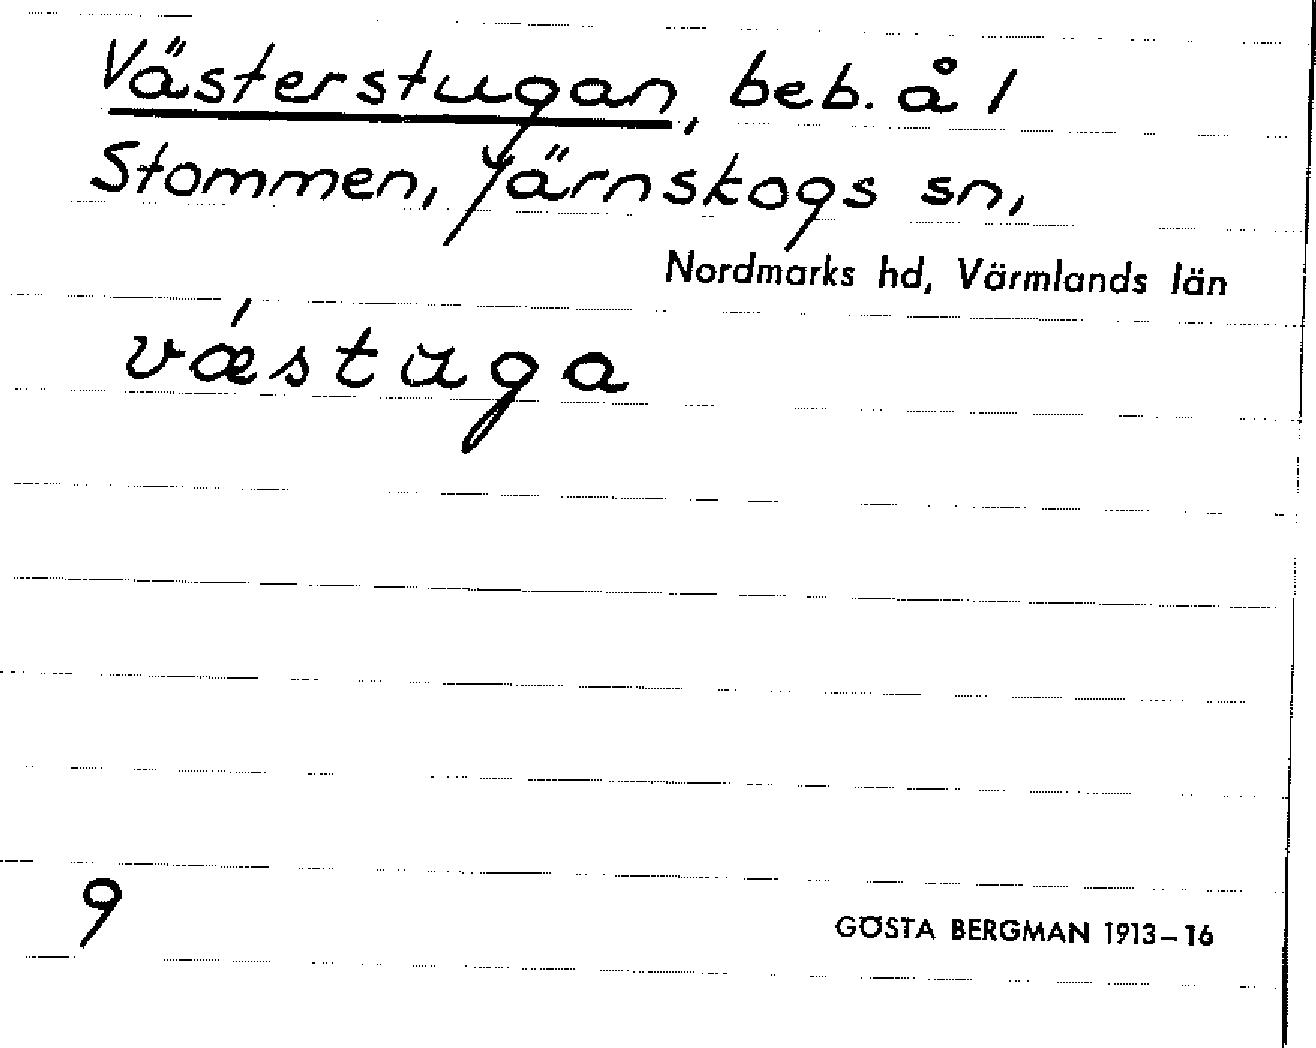 Västerstugan, beb. å 1
Stommen, Järnskogs sn,
Nordmarks hd, Värmlands län
vǽstuga
9
GÖSTA BERGMAN 1913–16